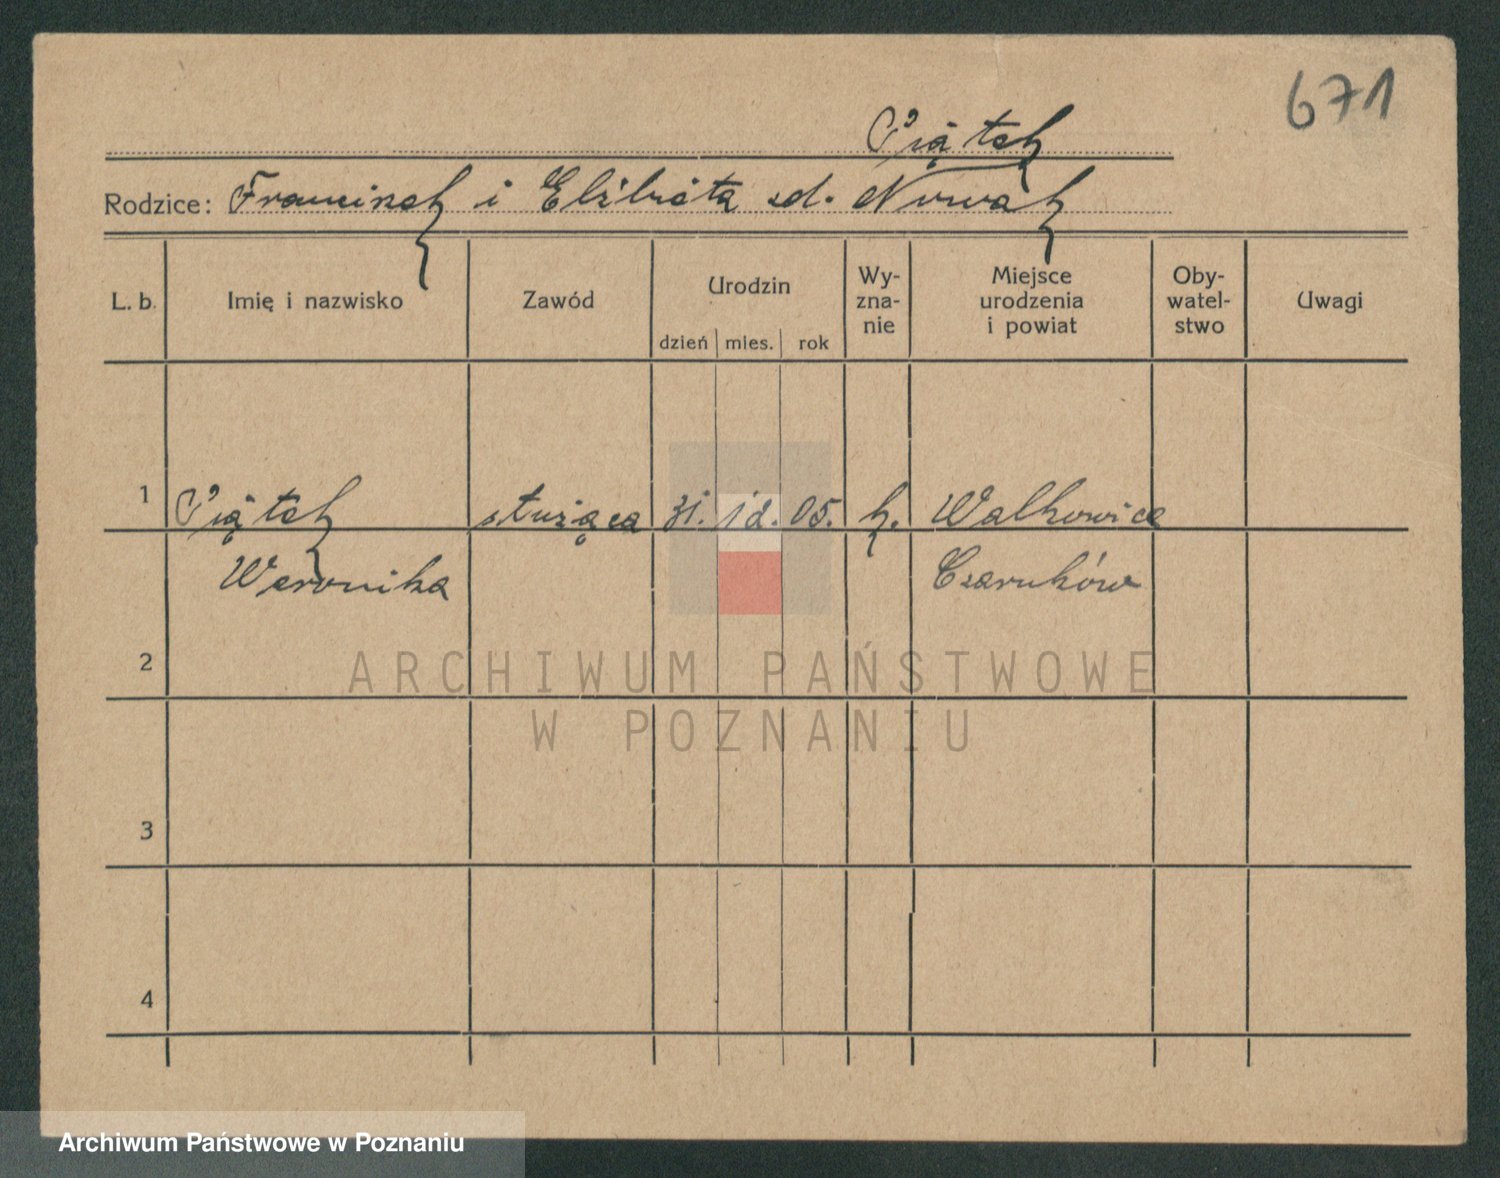 671
Piątek
Rodzice: Franciszek i Elżbieta zd. Nowak
L. b. Imię i nazwisko Zawód Urodzin dzień mies. rok Wy-zna-nie Miejsce urodzenia i powiat Oby-watel-stwo Uwagi
1 Piątek służąca 31. 12. 05. k. Walkowice
Weronika Czarnków
2
ARCHIWUM PAŃSTWOWE
W POZNANIU
3
4
Archiwum Państwowe w Poznaniu